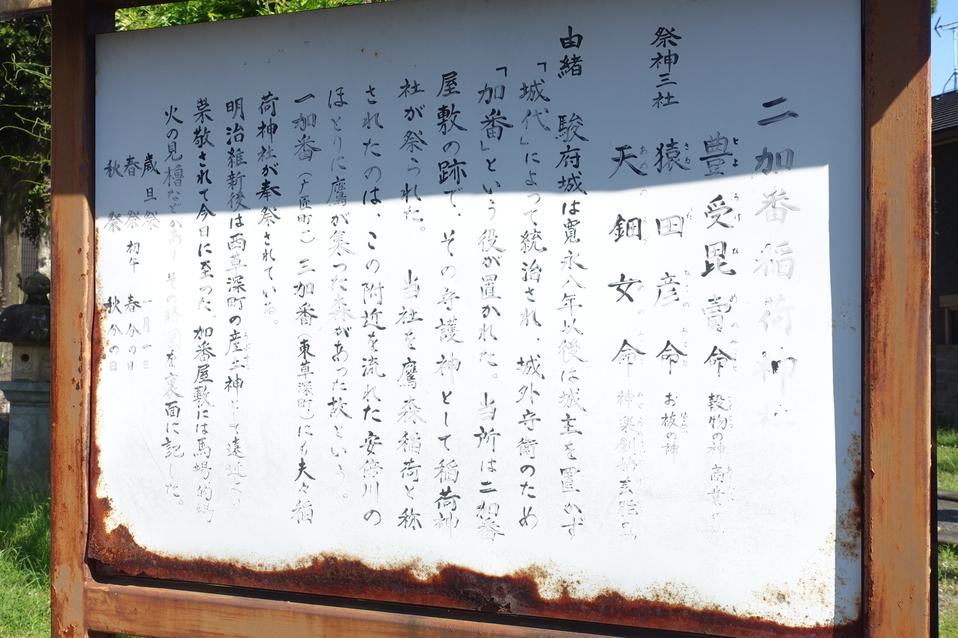 二加番稲荷神社
祭神三社
豊受毘賣命 穀物の神 商
猿田彦命 お祓の神
天鈿女命 神楽
由緒 駿府城は寛永八年以後は城主を置かず
「城代」によって統治され、城外守衛のため
「加番」という役が置かれた。当所は二加番
屋敷の跡で、その守護神として稲荷神
社が祭られた。 当社を鷹森稲荷と称
されたのは、この附近を流れた安倍川の
ほとりに鷹が集った森があった故という。
一加番(鷹匠町)三加番(東草深町)にも夫々稲
荷神社が奉祭されている。
明治維新後は西草深町の産土神として遠近より
崇敬されて今日に至った。加番屋敷には馬場的場
火の見櫓などがあり その を裏面に記した。
歳旦祭 一月一日
春祭 初午 春分の日
秋祭 秋分の日